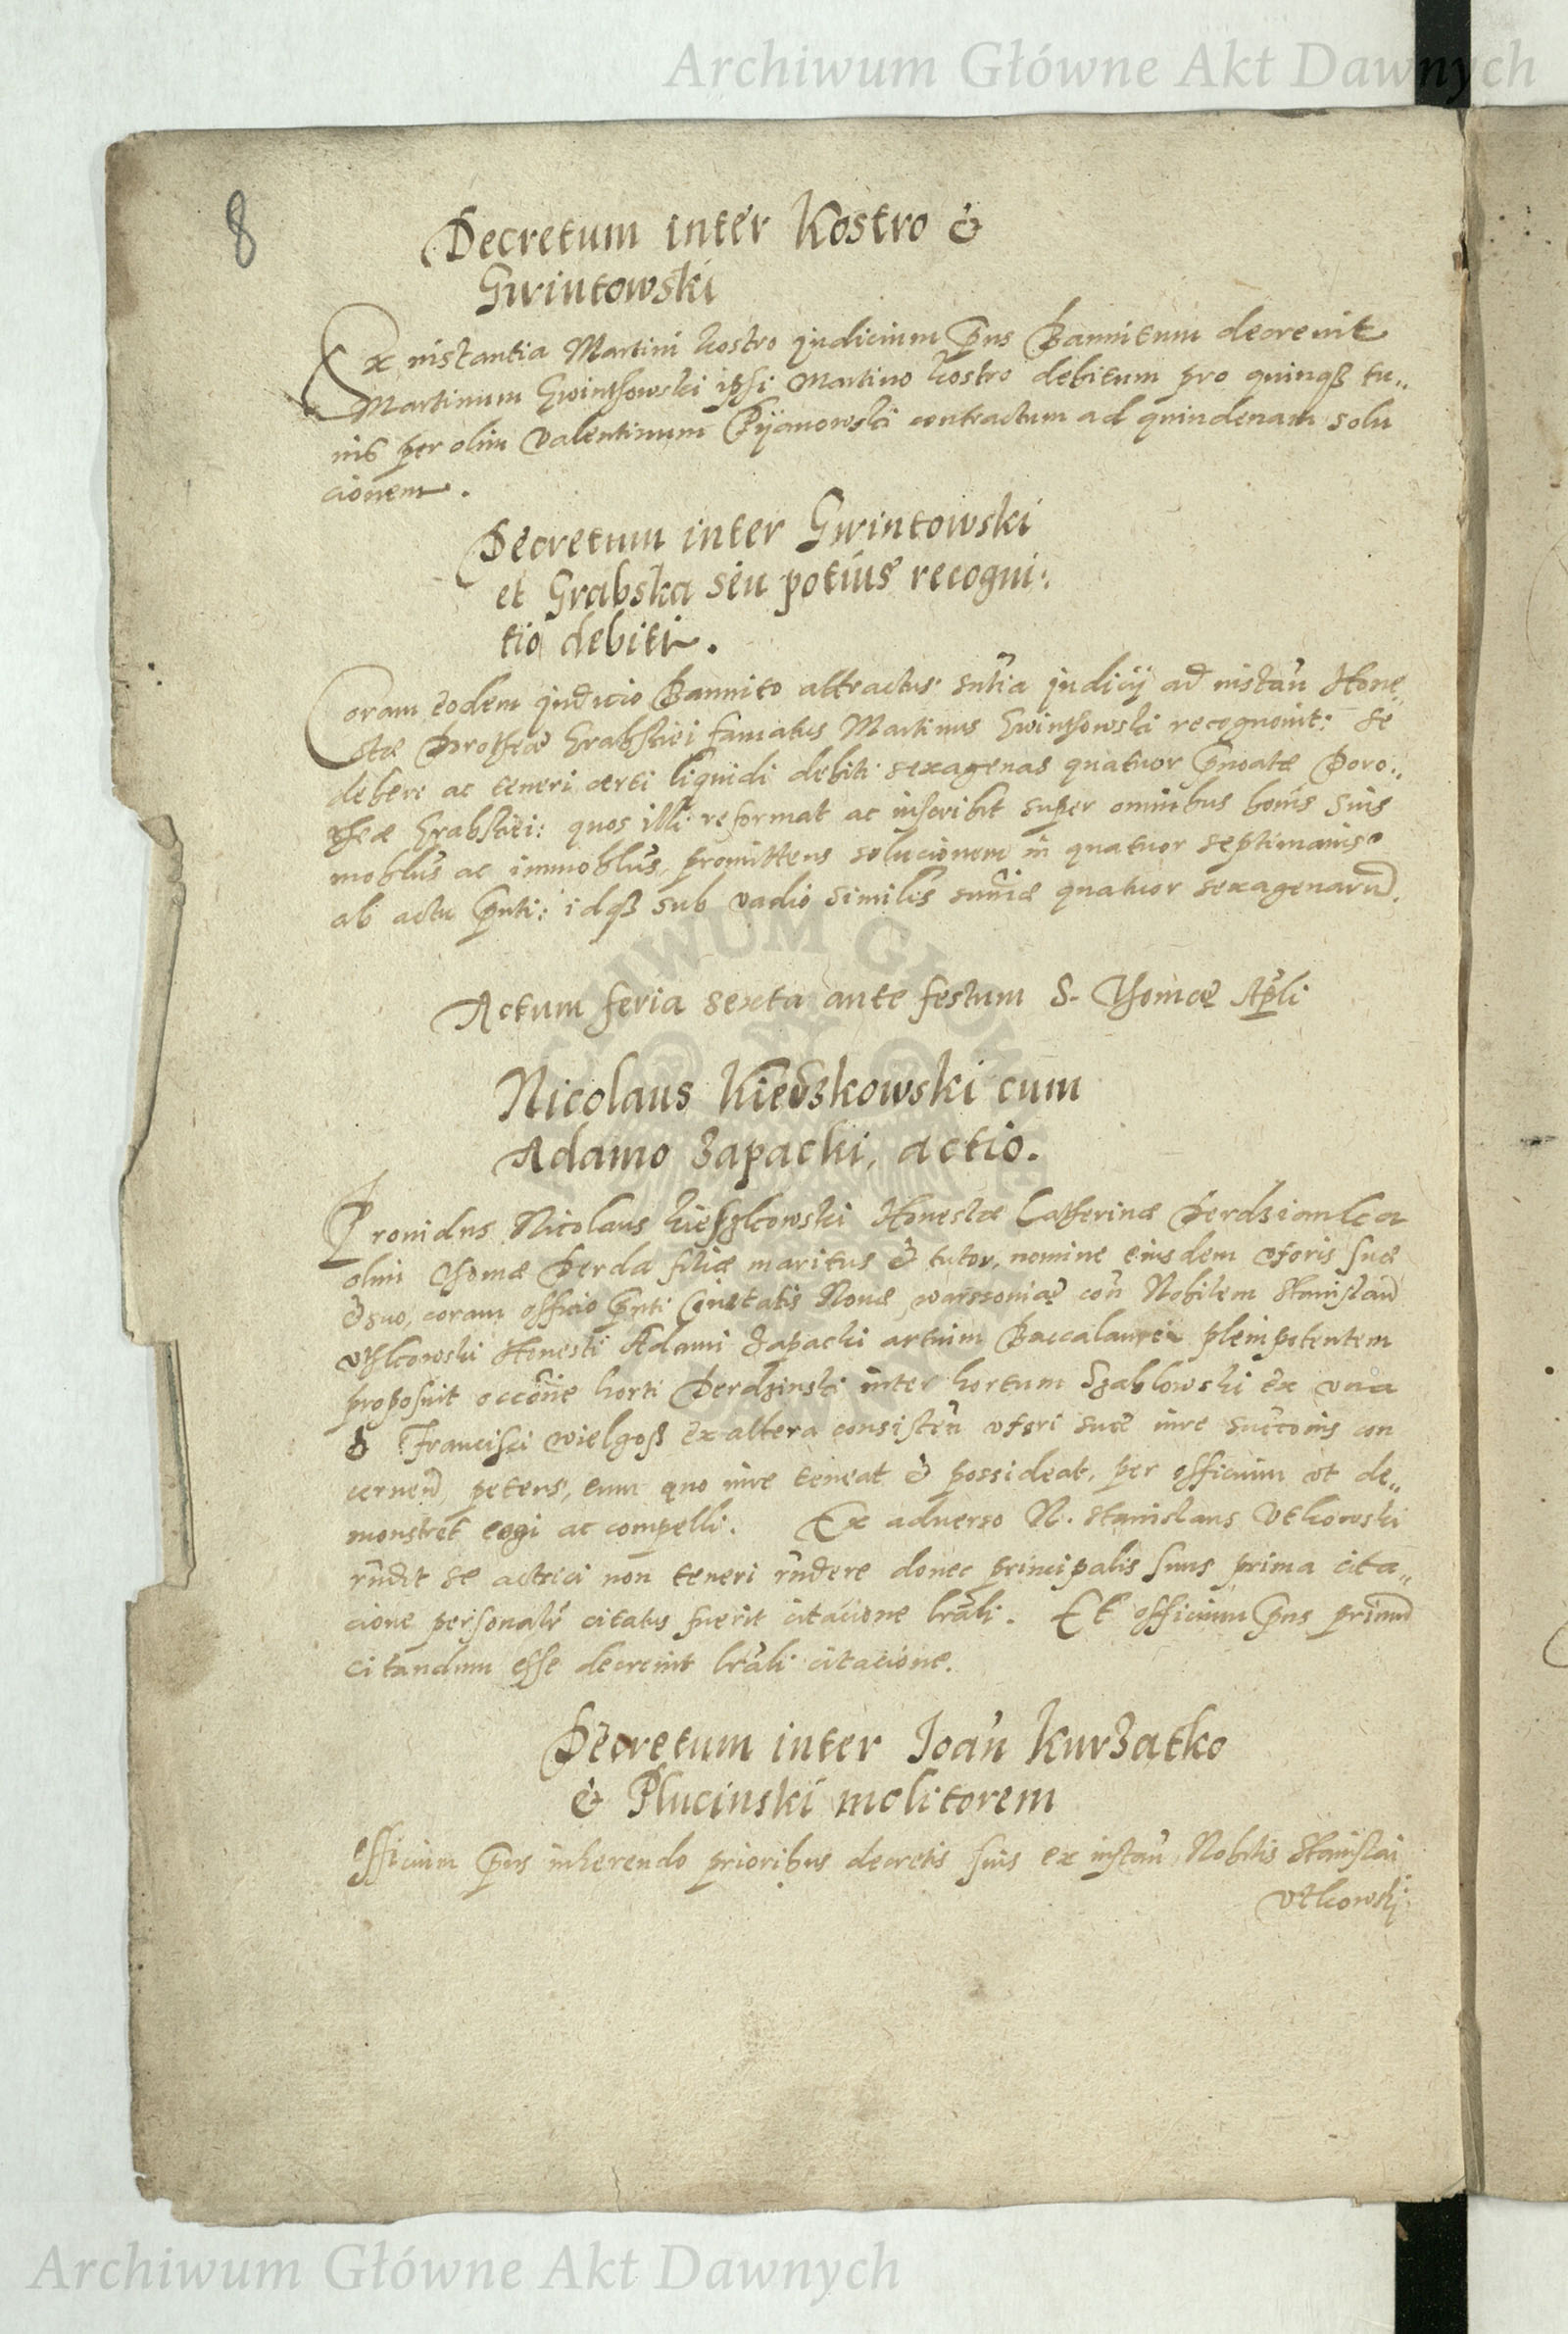 Archiwum Główne Akt Dawnych
8
Decretum inter Kostro &
Gwintowski
Ex instantia Martini Kostro judicium pñs Bannitum decrevit
Martinum Gwinthowski ipsi Martino Kostro debitum pro quinqß tu„
nis per olim Valentinum Pijanowski contractum ad quindenam solu
cionem.
Decretum inter Gwintowski
et Grabska seu potius recogni:
tio debiti.
Coram eodem judicio Bannito attractus sñtia judicij ad instañ Hone„
stæ Dorotheæ Grabskiei famatus Martinus Gwinthowski recognovit: se
debere ac teneri certi liquidi debiti sexagenas quatuor pñoatæ Doro„
theæ Grabskiei: quos illi reformat ac inscribit super omnibus bonis suis
moblus ac immoblus, promittens solucionem in quatuor septimanis
ab actu pñti: idqß sub vadio similis summæ quatuor sexagenarũ.
Actum feria sexta ante festum S. Thomæ Apłi
Nicolaus Kieszkowski cum
Adamo Zapacki, actio.
Providus Nicolaus Kieszkowski Honestæ Catherinæ Derdzianka
olim Thomæ Derda filiæ maritus & tutor, nomine eiusdem uxoris suæ
& suo, coram officio pñti Civitatis Novæ Warssoviæ coñ Nobilem Stanislaũ
Uthkowski Honesti Adami Zapacki artium Baccalaurei plenipotentem
proposuit occõne horti Derdzinski inter hortum Szablowski ex una
& Francisci Wielgoß ex altera consisteñ uxori suæ iure succõnis con
cerneñ petens, eum quo iure teneat & possideat, per officium ut de„
monstret cogi ac compelli. Ex adverso N. Stanislaus Utkowski
rñdit se actrici non teneri rñdere donec principalis suus prima cita„
cione personalr citatus fuerit citacione lrãli. Et officium pñs primũ
citandum esse decrevit lrãli citacione.
Decretum inter Joañ Kurzatko
& Plucinski molitorem
Officium pñs inherendo prioribus decretis suis ex instañ Nobilis Stanislai
Utkowski
Archiwum Główne Akt Dawnych